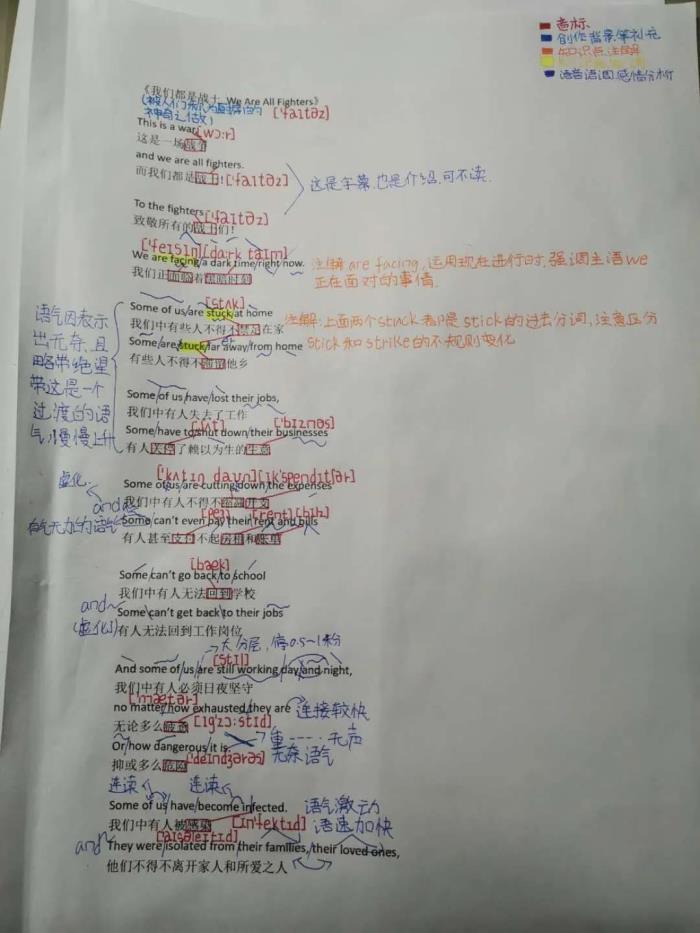 音标
创作背景等补充
知识点注解
语音语调.感情分析
《我们都是战士 We Are All Fighters》
['faɪtəz]
This is a war
[wɔ:r]
这是一场战争
and we are all fighters.
而我们都是战士!
['faɪtəz]
这是字幕.也是介绍.可不读.
To the fighters
['faɪtəz]
致敬所有的战士们!
['feɪsɪn] [da:rk taɪm]
We are facing/a dark time/right now.
我们正面临着黑暗时刻
注解 are facing, 运用现在进行时, 强调主语we
正在面对的事情.
[stʌk]
Some of us/are stuck/at home
我们中有些人不得不禁足在家
Some/are/stuck/far away/from home
有些人不得不滞留他乡
注解:上面两个stuck都是stick的过去分词,注意区分
stick和strike的不规则变化
语气因表示
出无奇,且
略带绝望
带这是一个
过渡的语
气,慢慢上升
Some of us/have/lost their jobs,
我们中有人失去了工作
[ʃʌt] ['bɪznəs]
Some/have to/shut down/their businesses
有人关停了赖以为生的生意
['kʌtɪn daʊn][ɪk'spendɪtʃər]
Some of us/are cutting down/the expenses
我们中有人不得不缩减开支
虚化.
有气无力的语气
[peɪ] [rent] [bɪlz]
Some/can't even pay/their rent and bills
有人甚至支付不起房租和账单
[bæk]
Some/can't go back/to school
我们中有人无法回到学校
and
(虚化)
Some/can't get back/to their jobs
有人无法回到工作岗位
大分层, 停0.5~1秒
[stɪl]
And some of/us/are still working day/and night,
我们中有人必须日夜坚守
['mætər]
no matter/how exhausted/they are
连接较快
无论多么疲惫
[ɪg'zɔ:stɪd]
Or/how dangerous/it is
重……无声
无奈语气
抑或多么危险
['deɪndʒərəs]
连读 连读
Some of us/have/become infected.
语气激动
我们中有人被感染
[ɪn'fektɪd]
语速加快
['aɪsəleɪtɪd]
and
They were/isolated from/their families,/their loved ones,
他们不得不离开家人和所爱之人